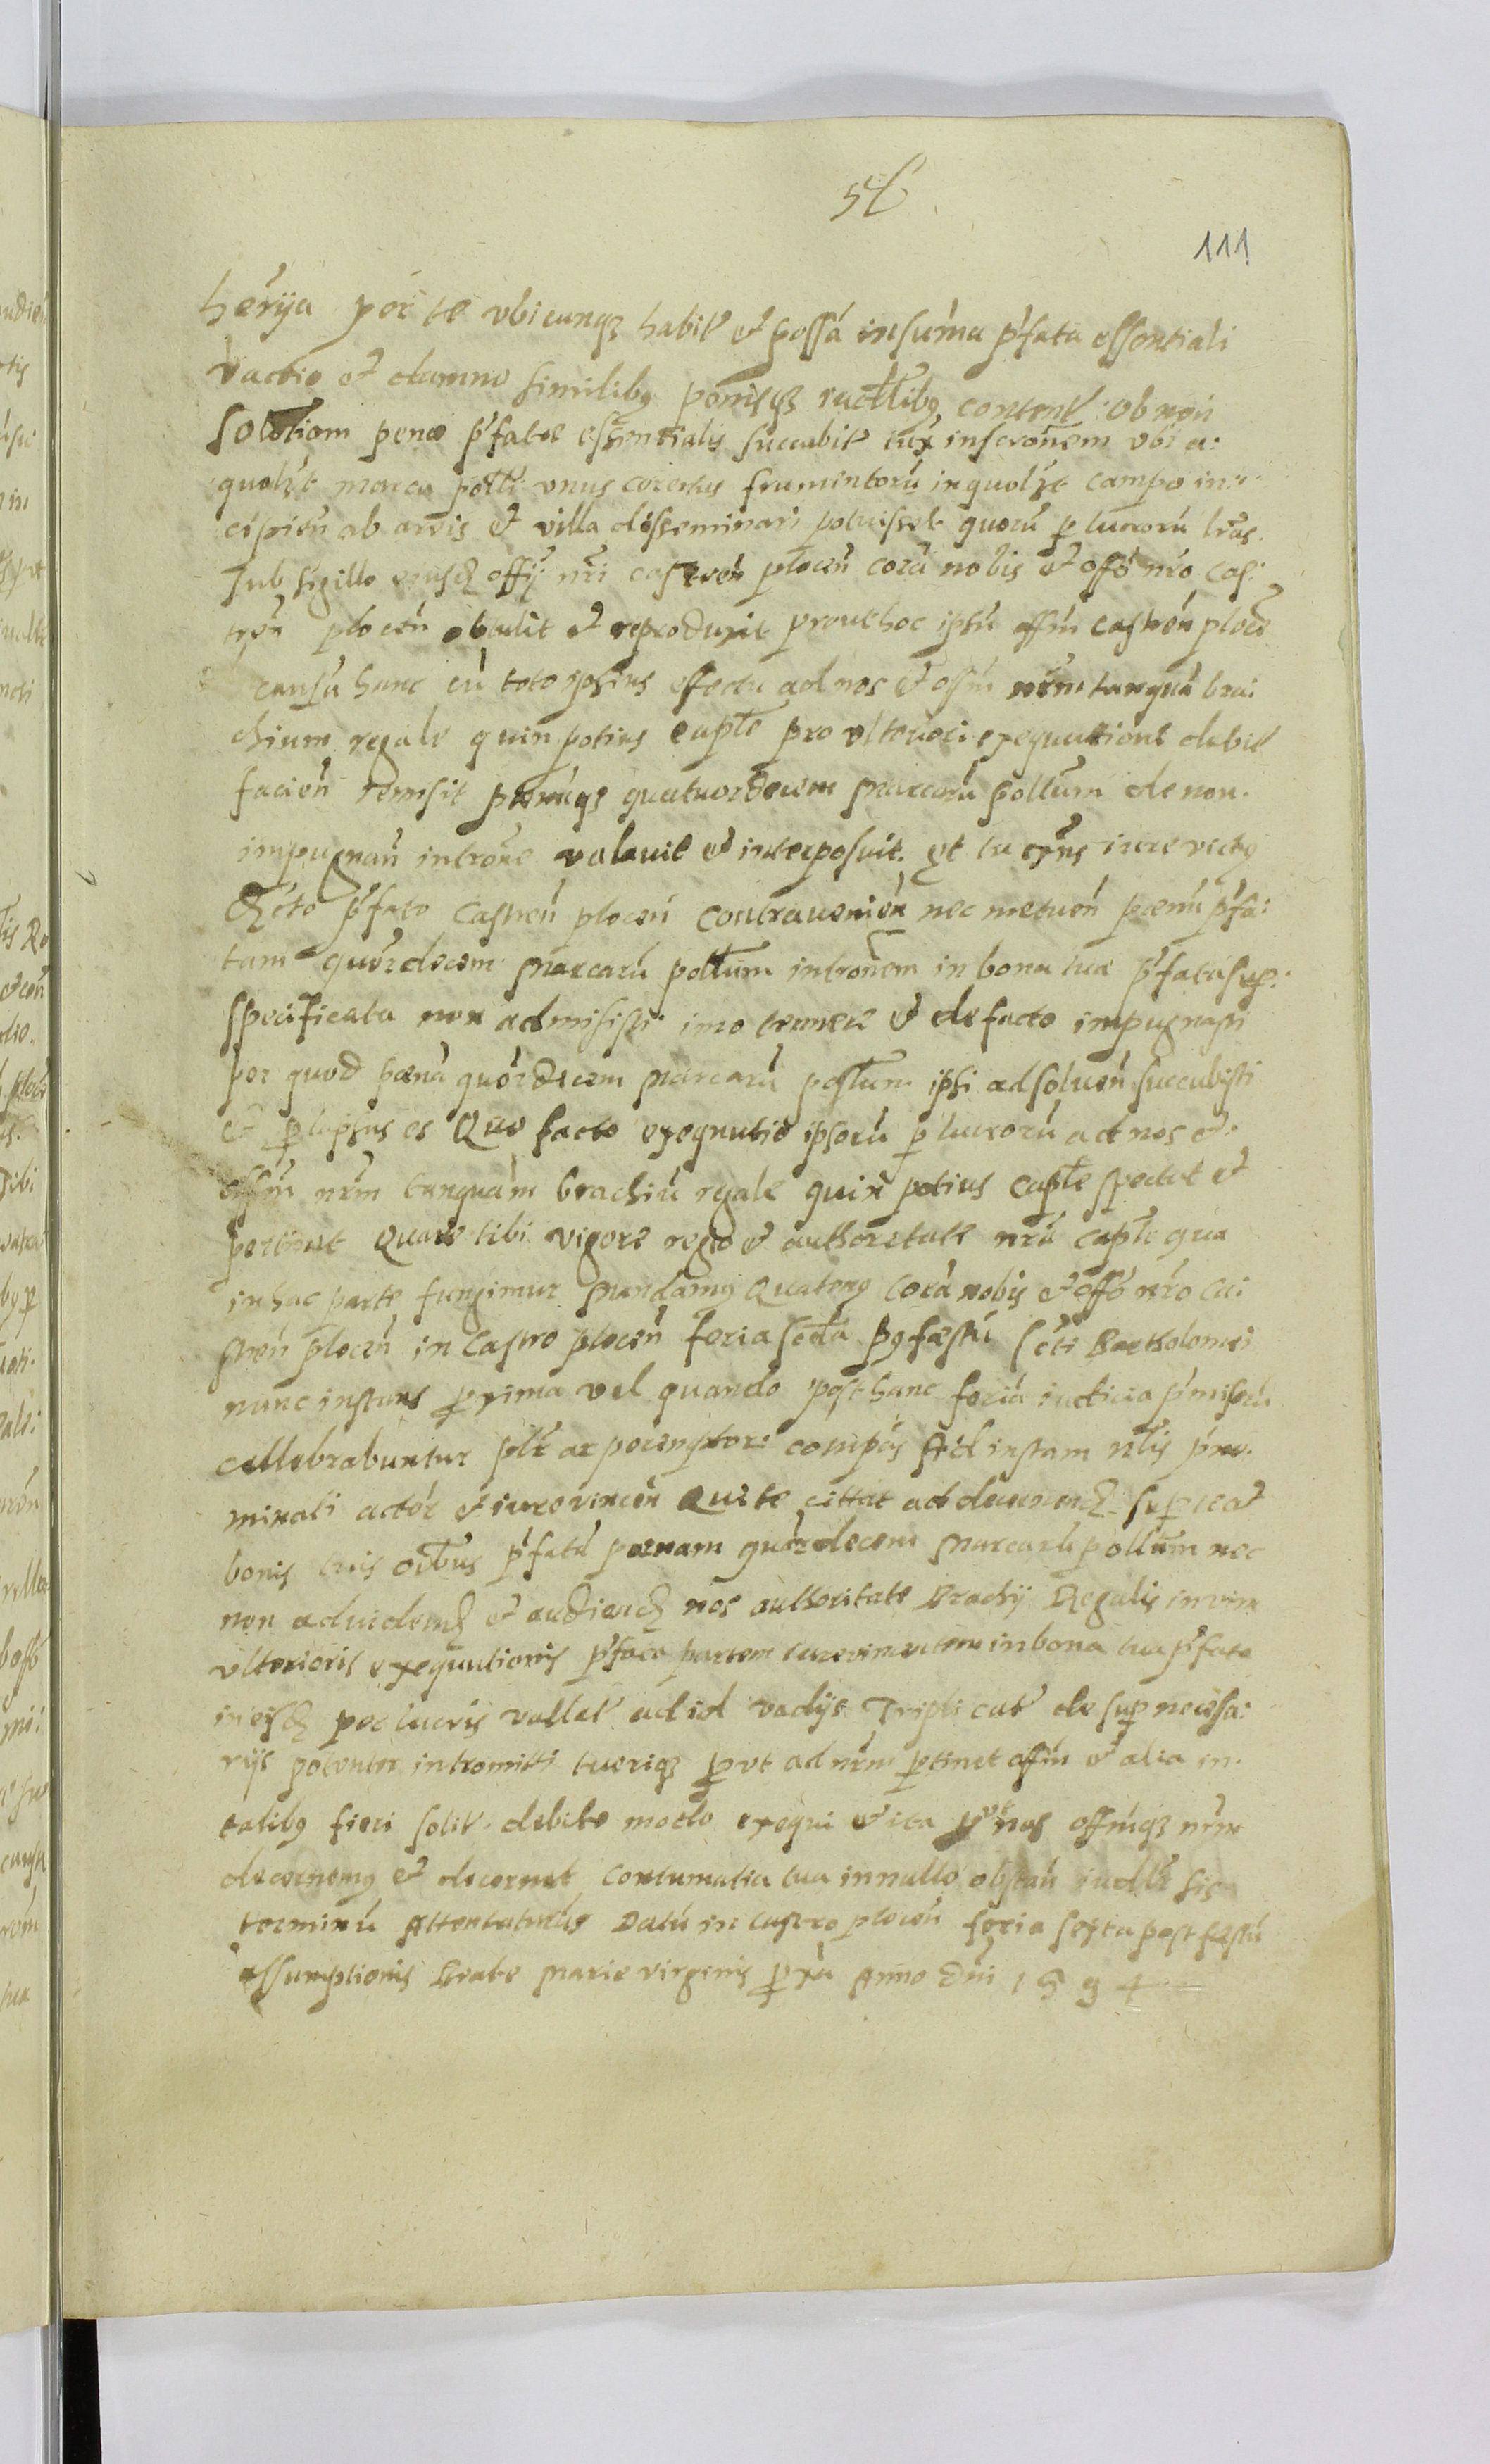 111
per te vbicunqz habit et possa in suma pfata essentiali
et damno similibq penisqz content ob non
solutiom pene pfatae essentialis succubit tux inscronem vbi a:
marca polli vnus coretus frumentoru in campo in:
cipien ab arvis et villa disseminari potuisset quoru p lucroru lras.
sub sigillo eiusq offij nri castren plocen cora nobis et offo nro cas:
tren plocen obtulit et reproduxit prout hoc ipsu offm castren plocen
causa hanc cu toto ipsius effectu ad nos et offm nrm tanqua bra:
chium regale quin potius capte pro vlteriori exequutione debit
facien remisit penaqz quatuordecem marcaru pollum de non.
impugnan introne valavit et interposuit. et tu iure victq
pfato castren plocen contravenien nec metuen paenu pfa:
tam quordecem marcaru polltum intronem in bona tua pfata sup:
specificata non admisisti imo temere et de facto impugnasti
per quod paena quordecem marcaru polltum ipsi ad soluen succubisti
et plapsus es Quo facto exequutio ipsoru p lucroru ad nos et
offm nrm tanquam brachiu regale quin potius capte spectat et
pertinet Quare tibi vigore regio et authoretate nra capte qua
in hac parte fungimur mandamq Quatenq cora nobis et offo nro ca:
stren plocen in castro plocen feria secda pq festu scti Bartholomei
nunc instans proxima vel quando post hanc feria iudicia pmissoru
cellebrabuntur pltr ac peremptor: compas Ad instam nlis pno.
minati actor et iurevincen Qui te cittat ad
bonis tuis oibus pfata paenam quordecem marcaru pollum nec
non ad videndq et audiendq nos authoritate Brachij Regalis in vim
vlterioris exequutionis pfata partem iurevincentem in bona tua pfata
in eisq per lucris vallat ad id vadijs Triplicat de sup necessa:
rijs potenter intromitti tueriqz prout ad nrm ptinet offm et alia in.
talibq fieri solit debito modo exequi et ita prout nos offmqz nrm
decernemq et decernet contumatia tua in nullo obstan sis
terminu Attentaturus Datu in castro plocen feria sexta post festu
Assumptionis Beate Marie virginis proxa Anno Dni 1594